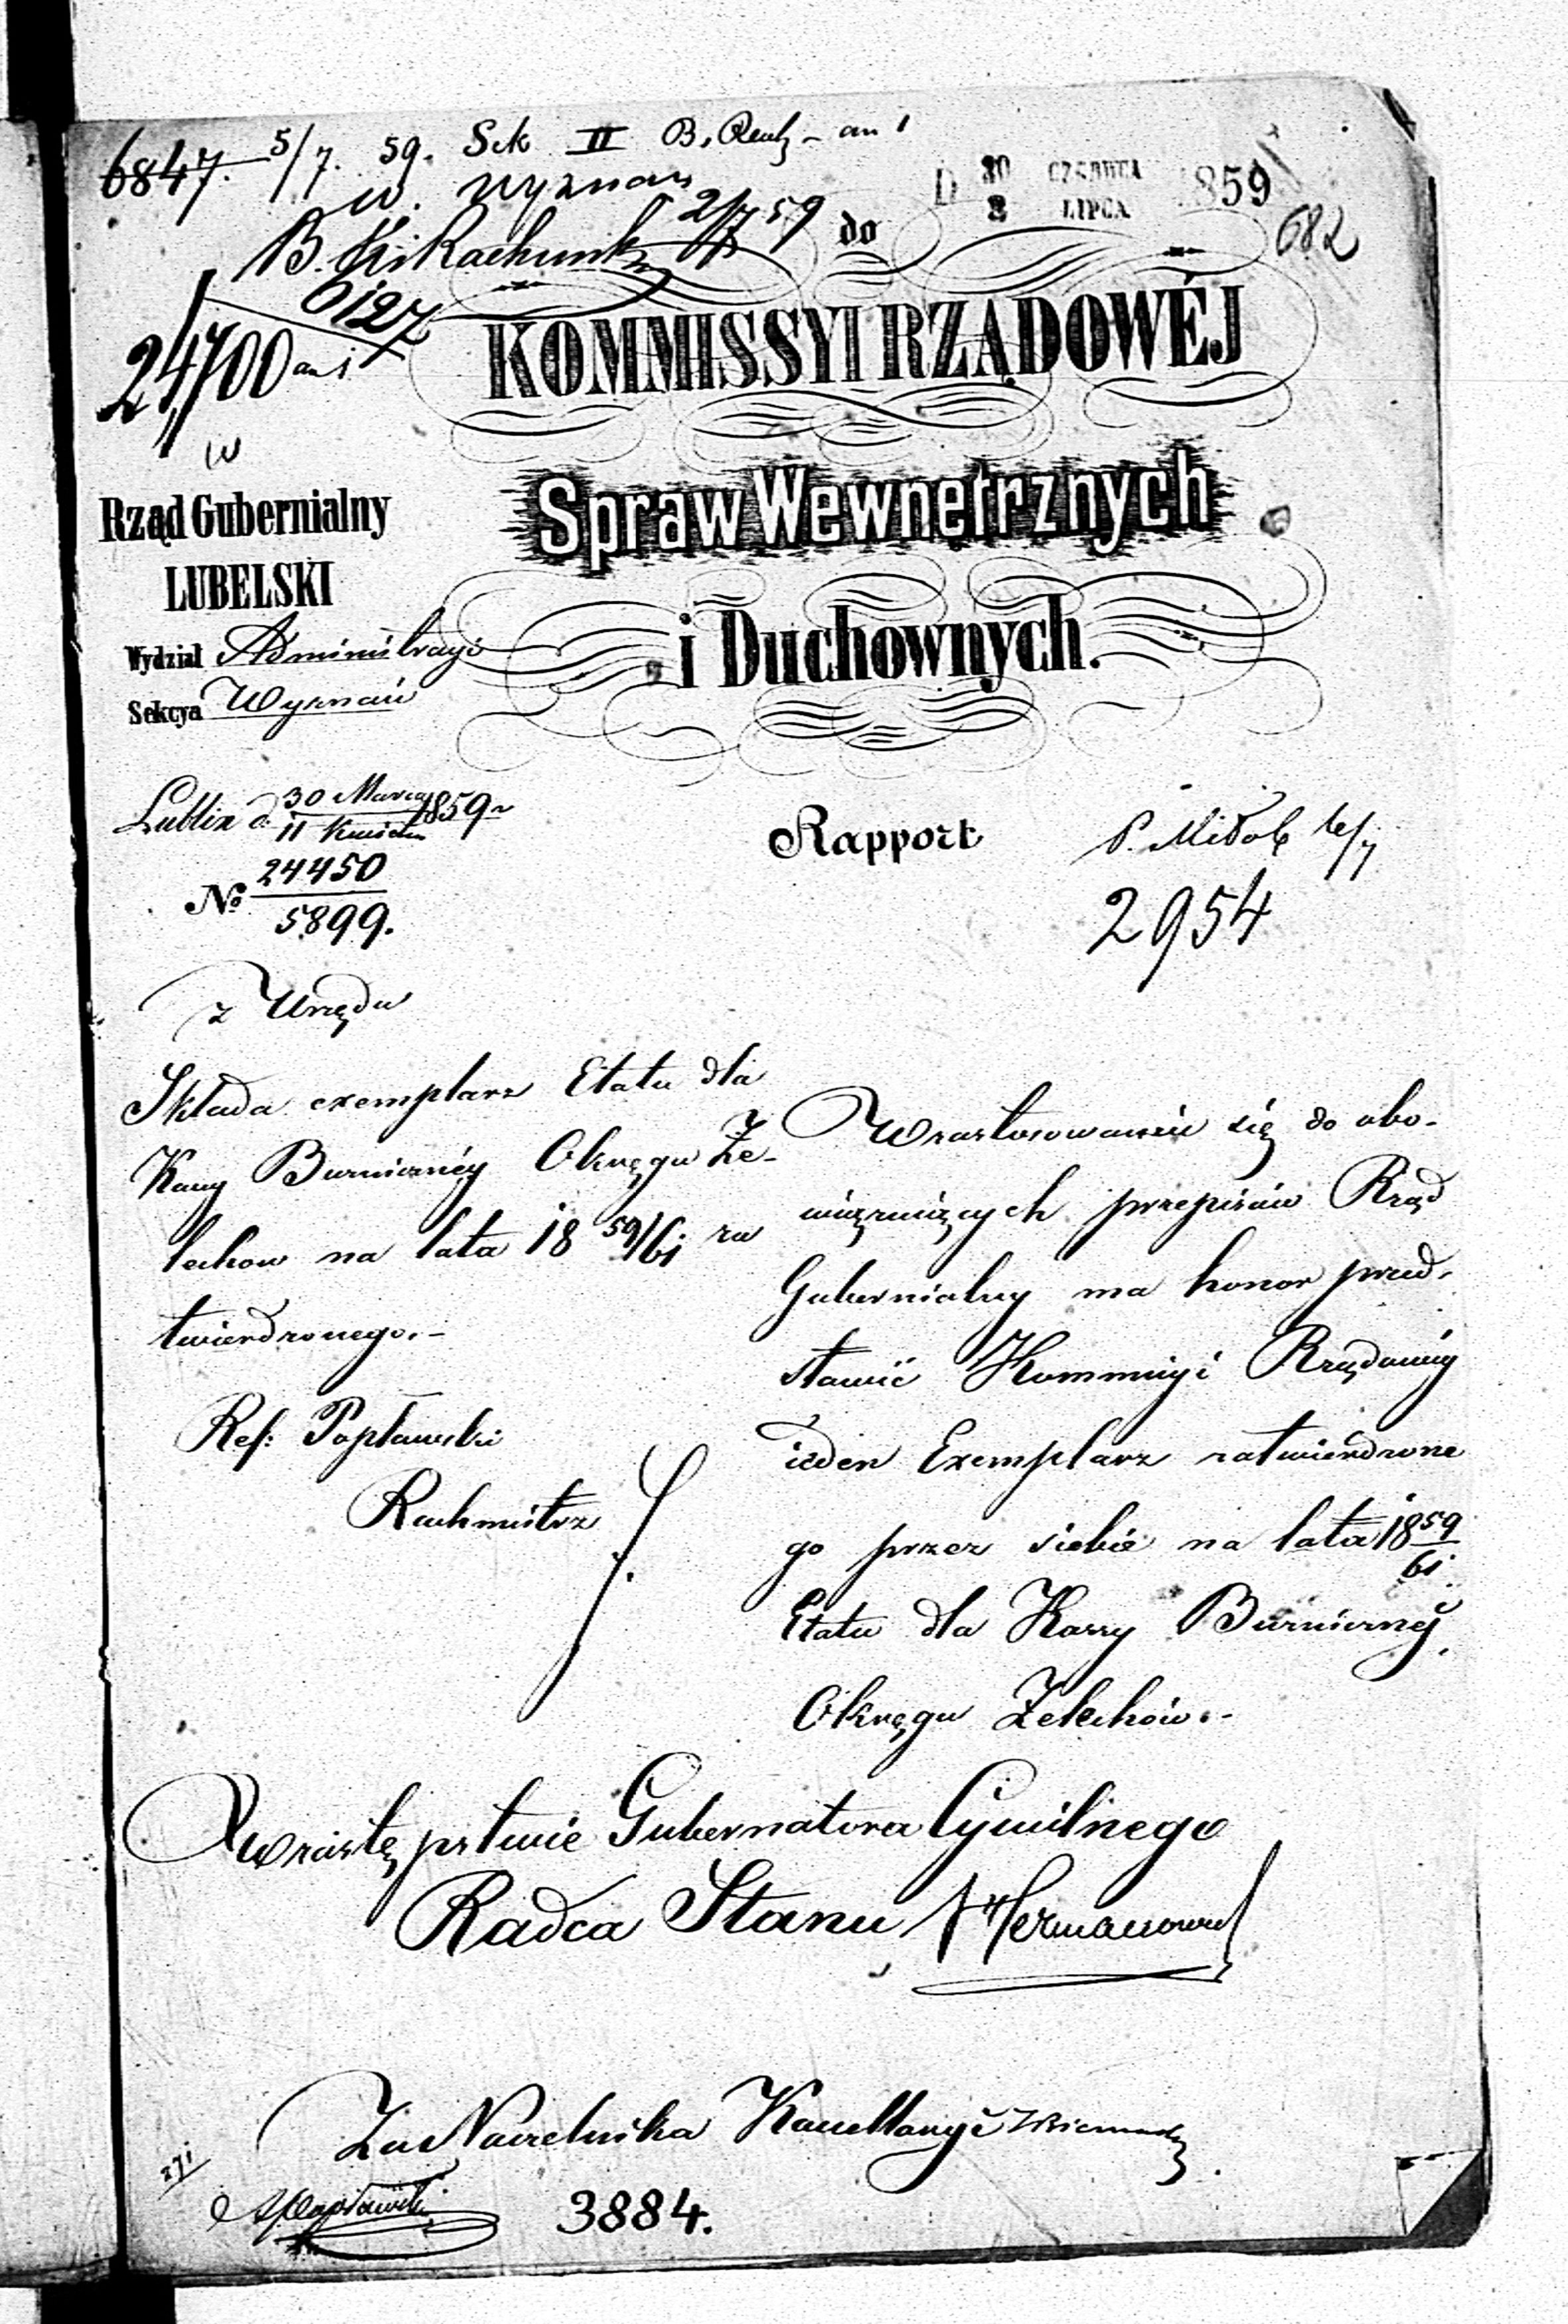 6847. 5/7. 59. Sek II B.
w. Wyznań
D 30 CZERWCA 1859
2 LIPCA
682
B. Rachunk 2/7 59
6127
24700
do
KOMMISSYI RZĄDOWÉJ
Spraw Wewnętrznych
i Duchownych.
Rząd Gubernialny
LUBELSKI
Wydział Administracyi
Sekcya Wyznań
Lublin d. 30 Marca 1859 r
11 Kwietn
№ 24450
5899.
Rapport
2954
z Urzędu
Składa exemplarz Etatu dla
Kassy Bużniczney Okręgu Że-
lechow na lata 18 59/61 za
twierdzonego.-
Ref: Popławski
Rachmistrz
W zastosowaniu się do obo-
wiązuiących przepisów Rząd
Gubernialny ma honor przed-
stawić Kommissyi Rządowéy
ieden Exemplarz zatwierdzone
go przez siebie na lata 18 59
61
Etatu dla Kassy Bużnicznéy
Okręgu Żelechów.-
w zastępstwie Gubernatora Cywilnego
Radca Stanu
Za Naczelnika Kancellaryi
3884.